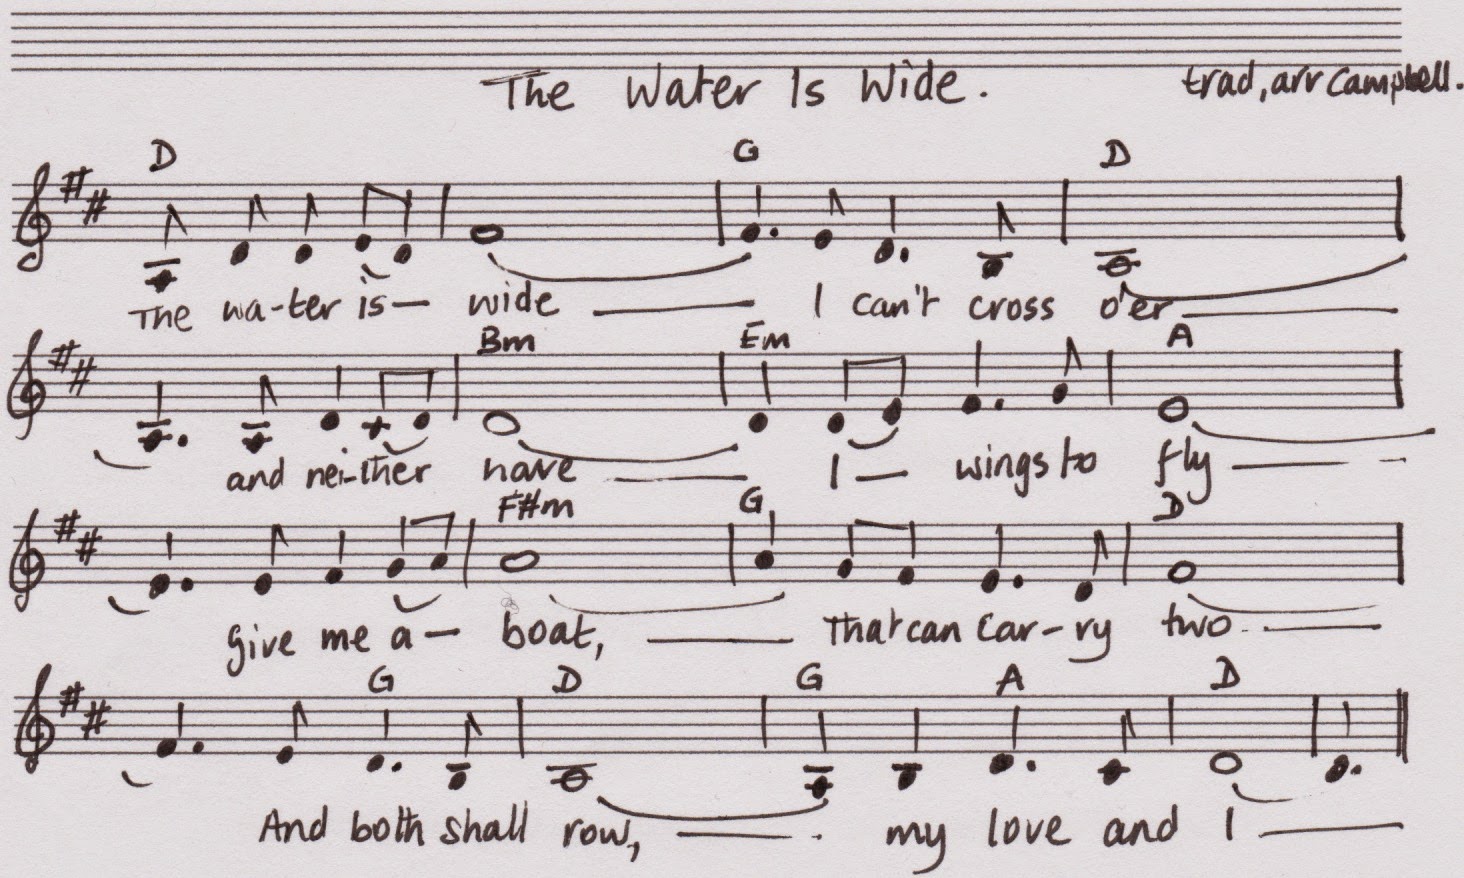 The Water Is Wide. trad, arr Campbell.
D G D
The wa-ter is— wide —— I can't cross o'er ——
Bm Em A
and nei-ther have —— I — wings to fly ——
F#m G D
give me a— boat, —— That can car-ry two ——
G D G A D
And both shall row, —— my love and I ——